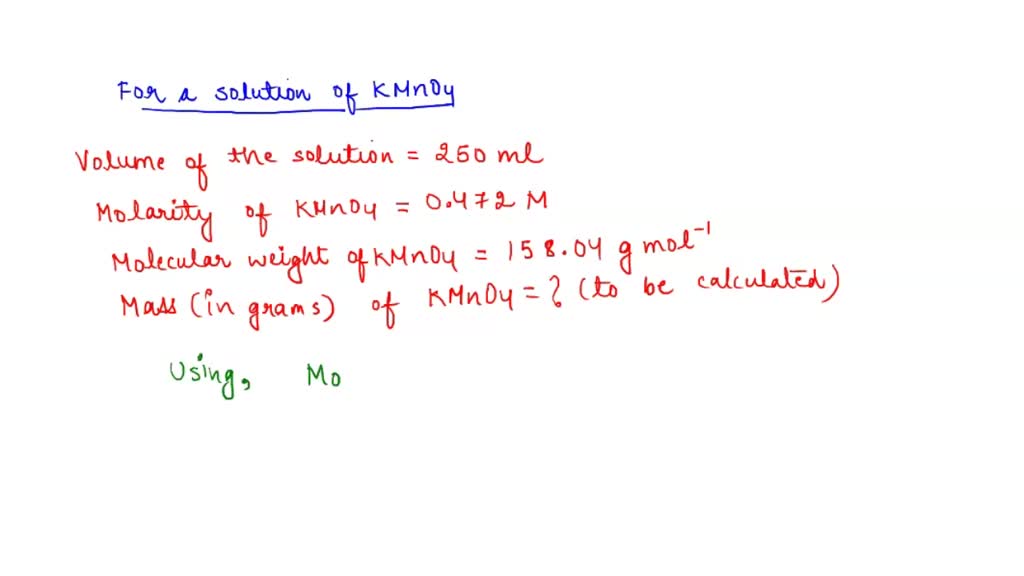 For a solution of KMnO4
Volume of the solution = 250 ml
Molarity of KMnO4 = 0.472 M
Molecular weight of KMnO4 = 158.04 g mol⁻¹
Mass (in grams) of KMnO4 = ? (to be calculated)
Using, Mo